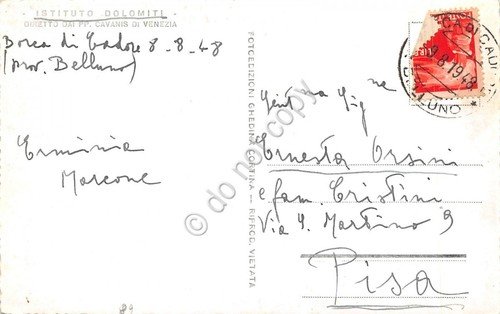 ISTITUTO DOLOMITI
DIRETTO DAI PP. CAVANIS DI VENEZIA
Borca di Cadore 8-8-48
(prov. Belluno)
Erminia
Marcone
FOTOEDIZIONI GHEDINA CORTINA - RIPROD. VIETATA
Gent ma Sig na
Ernesta Orsini
e fam. Cristini
Via S. Martino 9
Pisa
8.1948
BELLUNO
do not copy